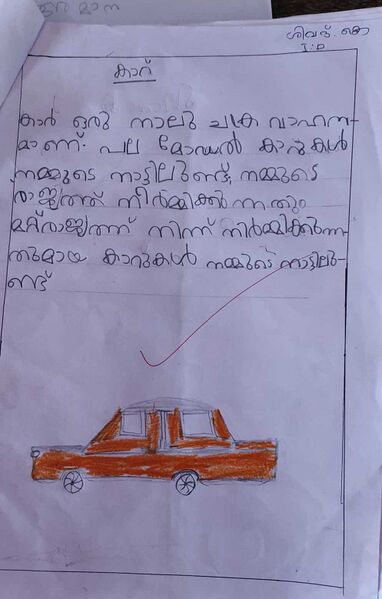 ശിവദ്. കെ
I:D
കാറ്
കാർ ഒരു നാലു ചക്ര വാഹന-
മാണ്. പല മോഡൽ കാറുകൾ
നമ്മുടെ നാട്ടിലുണ്ട്. നമ്മുടെ
രാജ്യത്ത് നിർമ്മിക്കുന്നതും
മറ്റ്രാജ്യത്ത് നിന്ന് നിർമ്മിക്കുന്ന-
തുമായ കാറുകൾ നമ്മുടെ നാട്ടിലു-
ണ്ട്